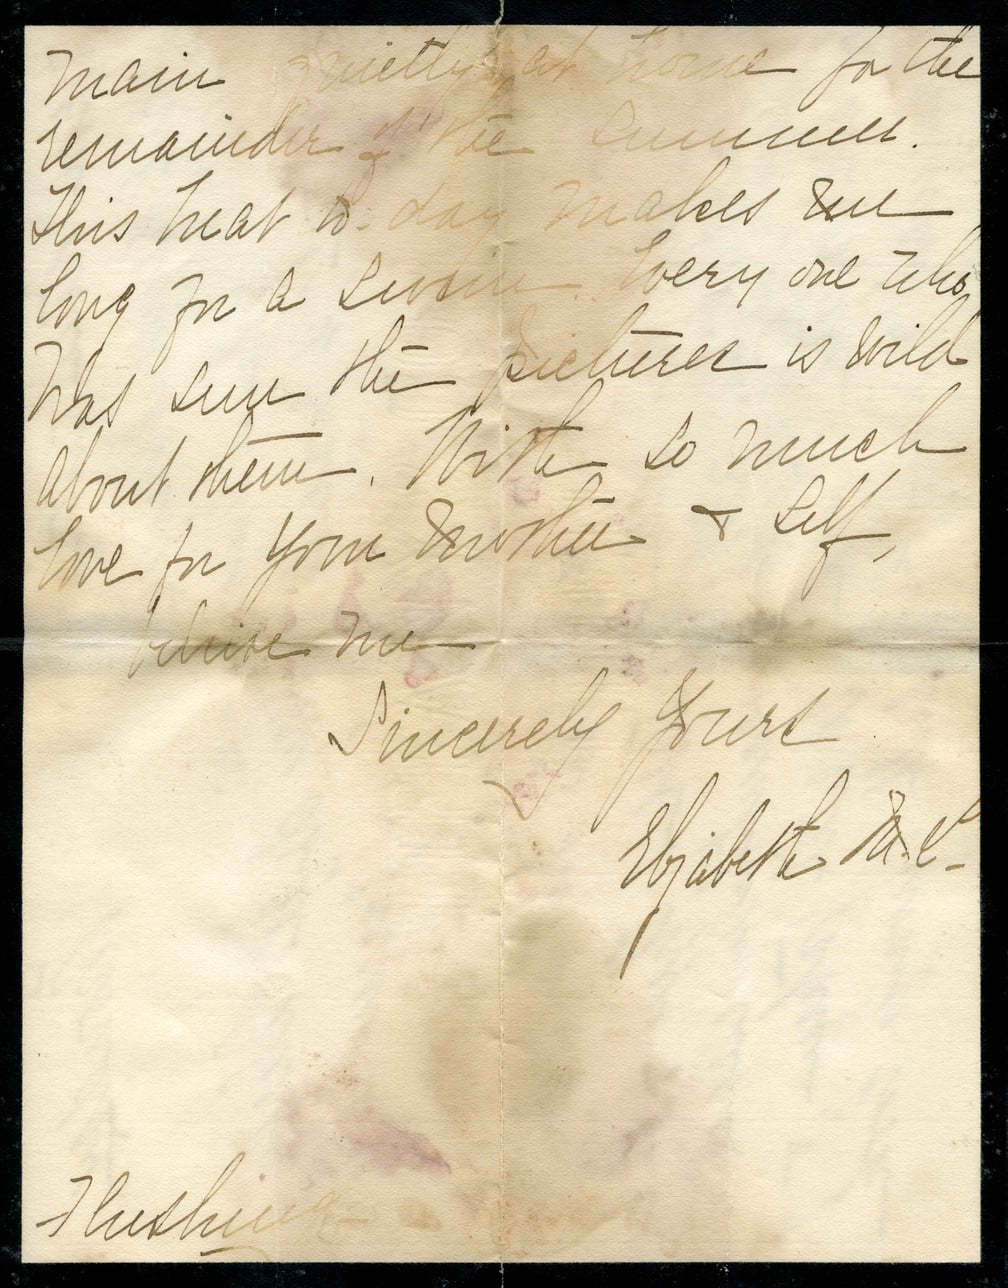 main quietly at home for the
remainder of the summer.
This heat to-day makes me
long for a swim. Every one who
has seen the pictures is wild
about them. With so much
love for your mother & self,
believe me
Sincerely Yours
Elizabeth
Flushing